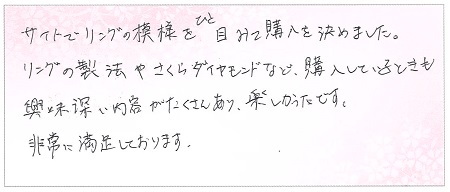 サイトでリングの模様をひと目みて購入を決めました。
リングの製法やさくらダイヤモンドなど、購入しているときも
興味深い内容がたくさんあり、楽しかったです。
非常に満足しております。